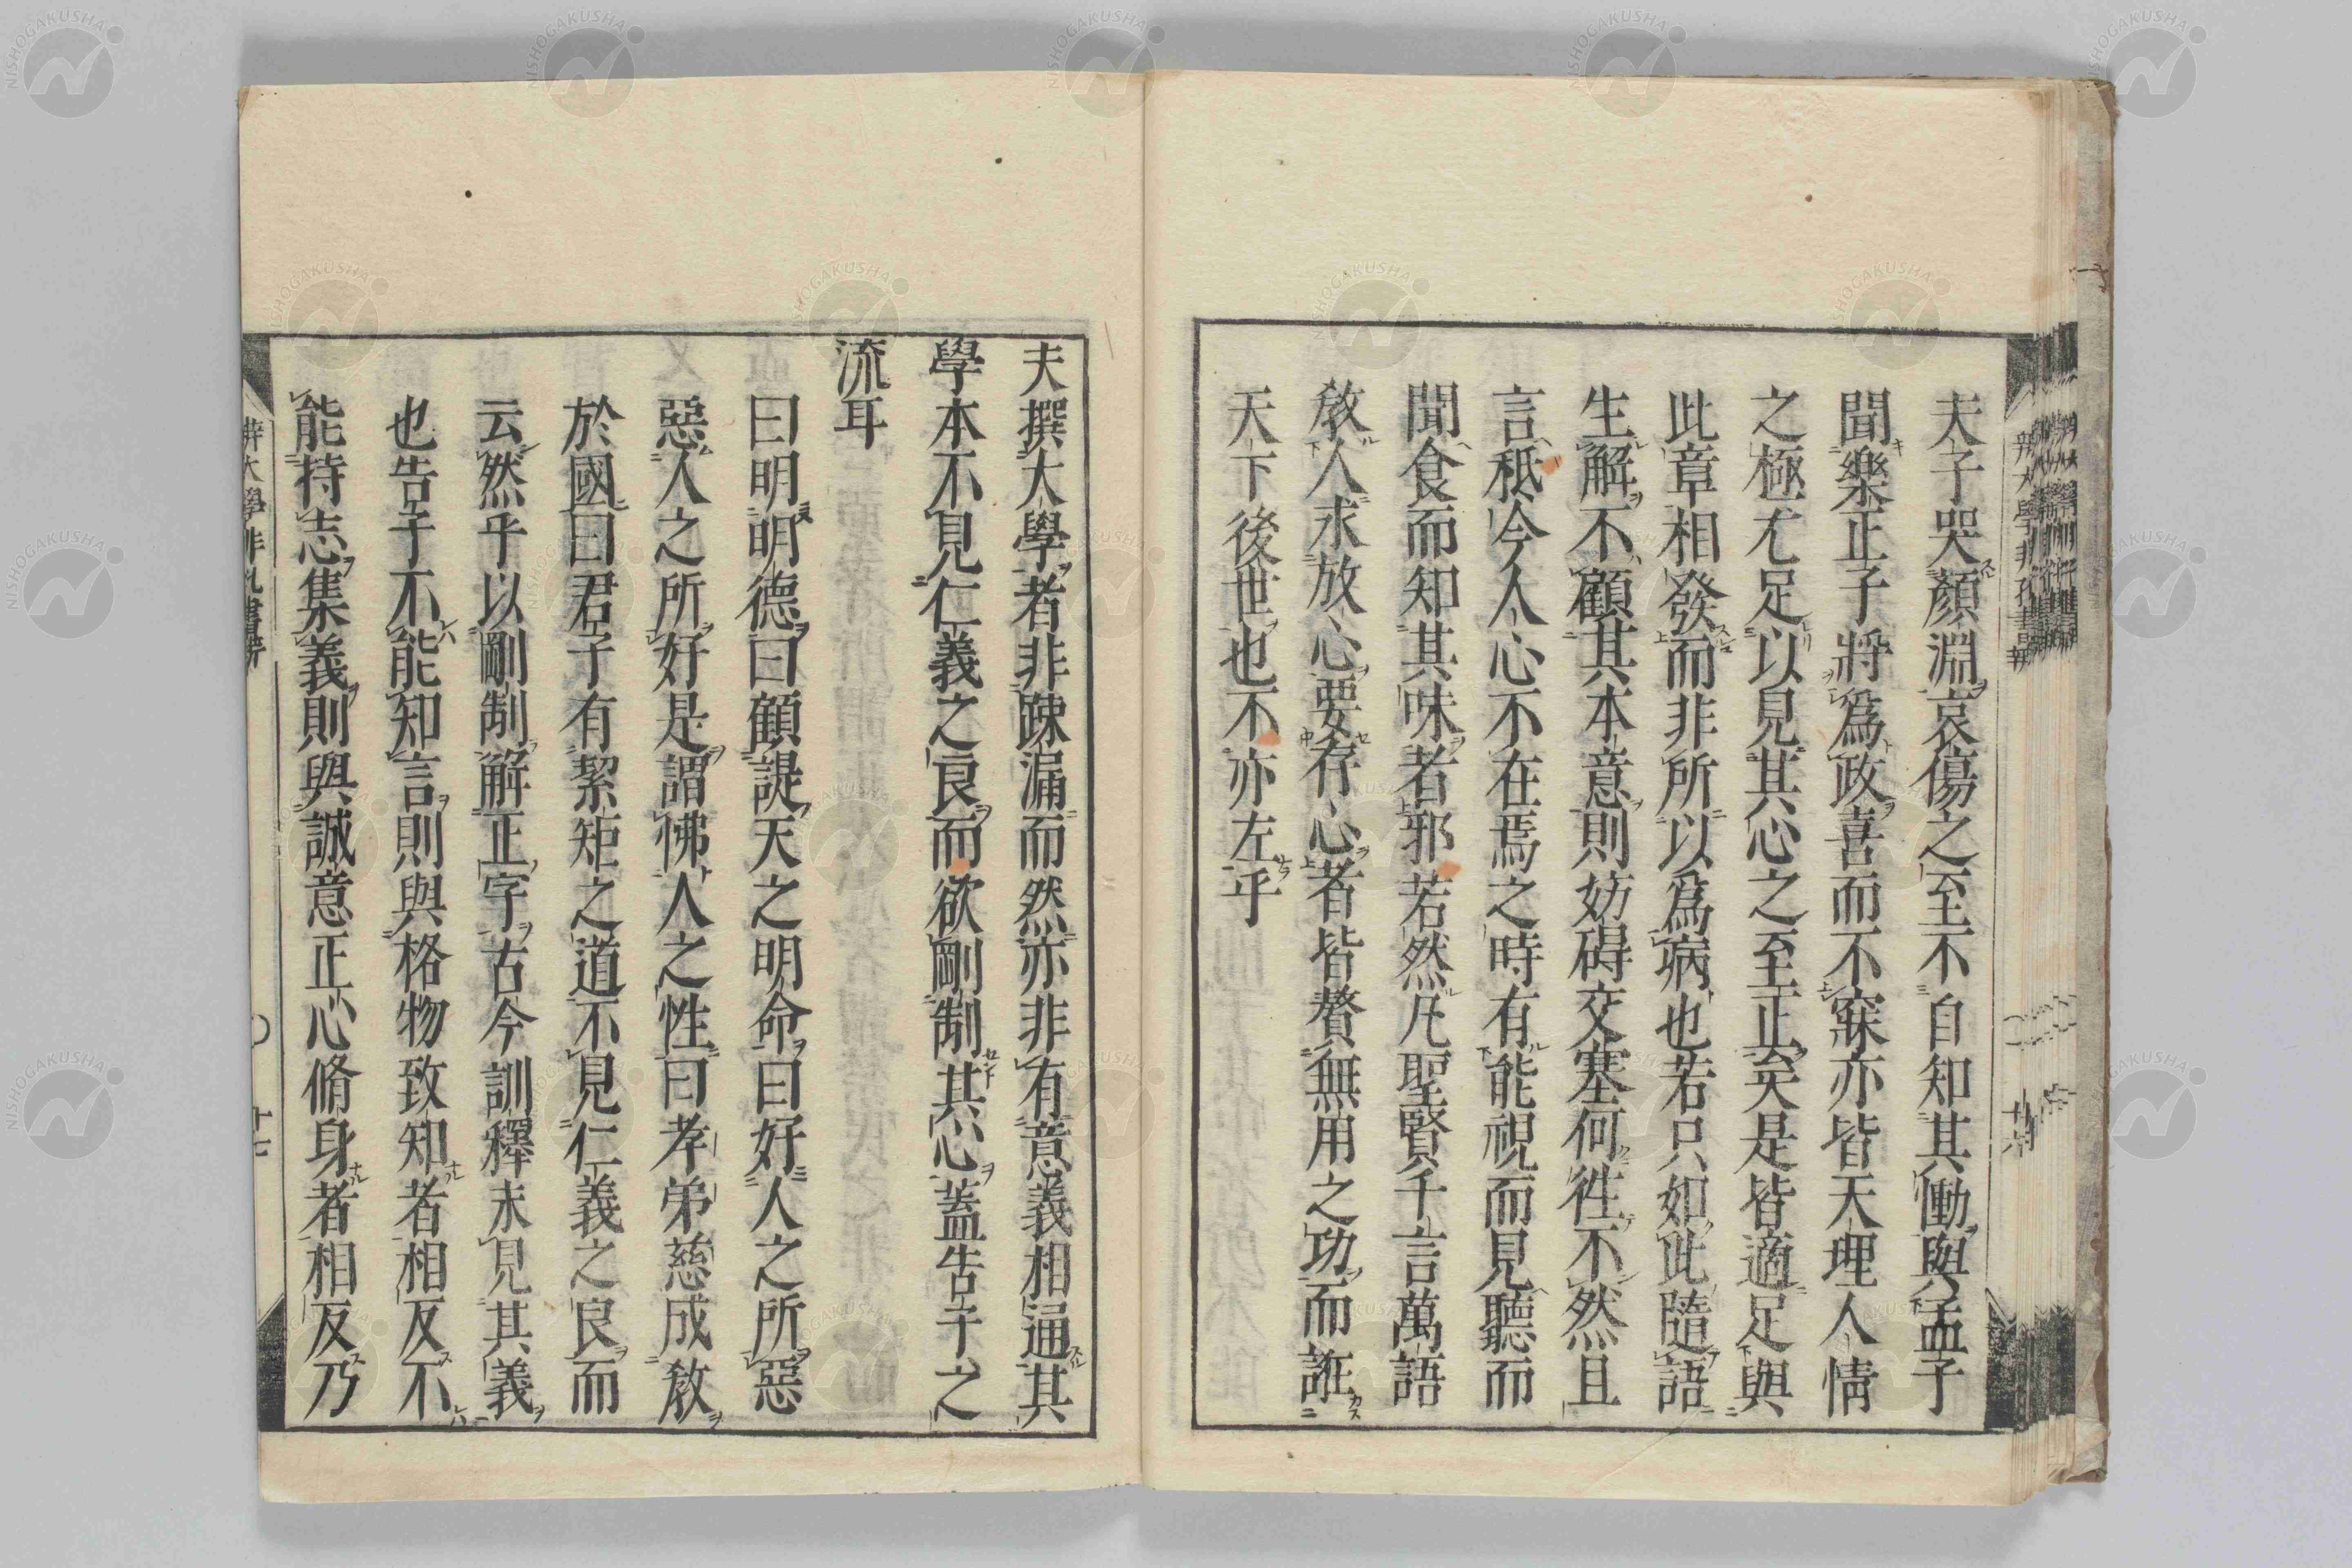 夫子哭顏淵哀傷之至不自知其慟與孟子
聞樂正子將爲政喜而不寐亦皆天理人情
之極尤足以見其心之至正矣是皆適足與
此章相發而非所以爲病也若只如此隨語
生解不顧其本意則妨碍交塞何徃不然且
言秪今人心不在焉之時有能視而見聽而
聞食而知其味者邪若然凡聖賢千言萬語
敎人求放心要存心者皆贅無用之功而誑
天下後世也不亦左乎
夫撰大學者非踈漏而然亦非有意義相通其
學本不見仁義之良而欲剛制其心蓋告子之
流耳
曰明明德曰顧諟天之明命曰好人之所惡
惡人之所好是謂怫人之性曰孝弟慈成敎
於國曰君子有絜矩之道不見仁義之良而
云然乎以剛制解正字古今訓釋未見其義
也告子不能知言則與格物致知者相反不
能持志集義則與誠意正心脩身者相反乃
辨大學非孔書辨
十七
辨大學非孔書辨
十六
NISHOGAKUSHA